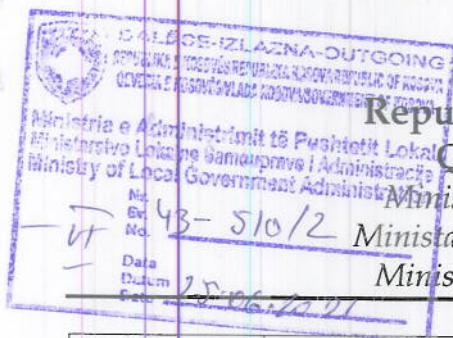 DALËSE-IZLAZNA-OUTGOING
REPUBLIKA E KOSOVËS/REPUBLIKA KOSOVA/REPUBLIC OF KOSOVA
QEVERIA E KOSOVËS/VLADA KOSOVA/GOVERNMENT OF KOSOVA
Ministria e Administrimit të Pushtetit Lokal
Ministarstvo Lokalne Samouprave i Administracije
Ministry of Local Government Administ
Nr.
Br.
No. 43-510/2
Data
Datum
Date 25.06.2021
Repu
Minis
Minista
Minis